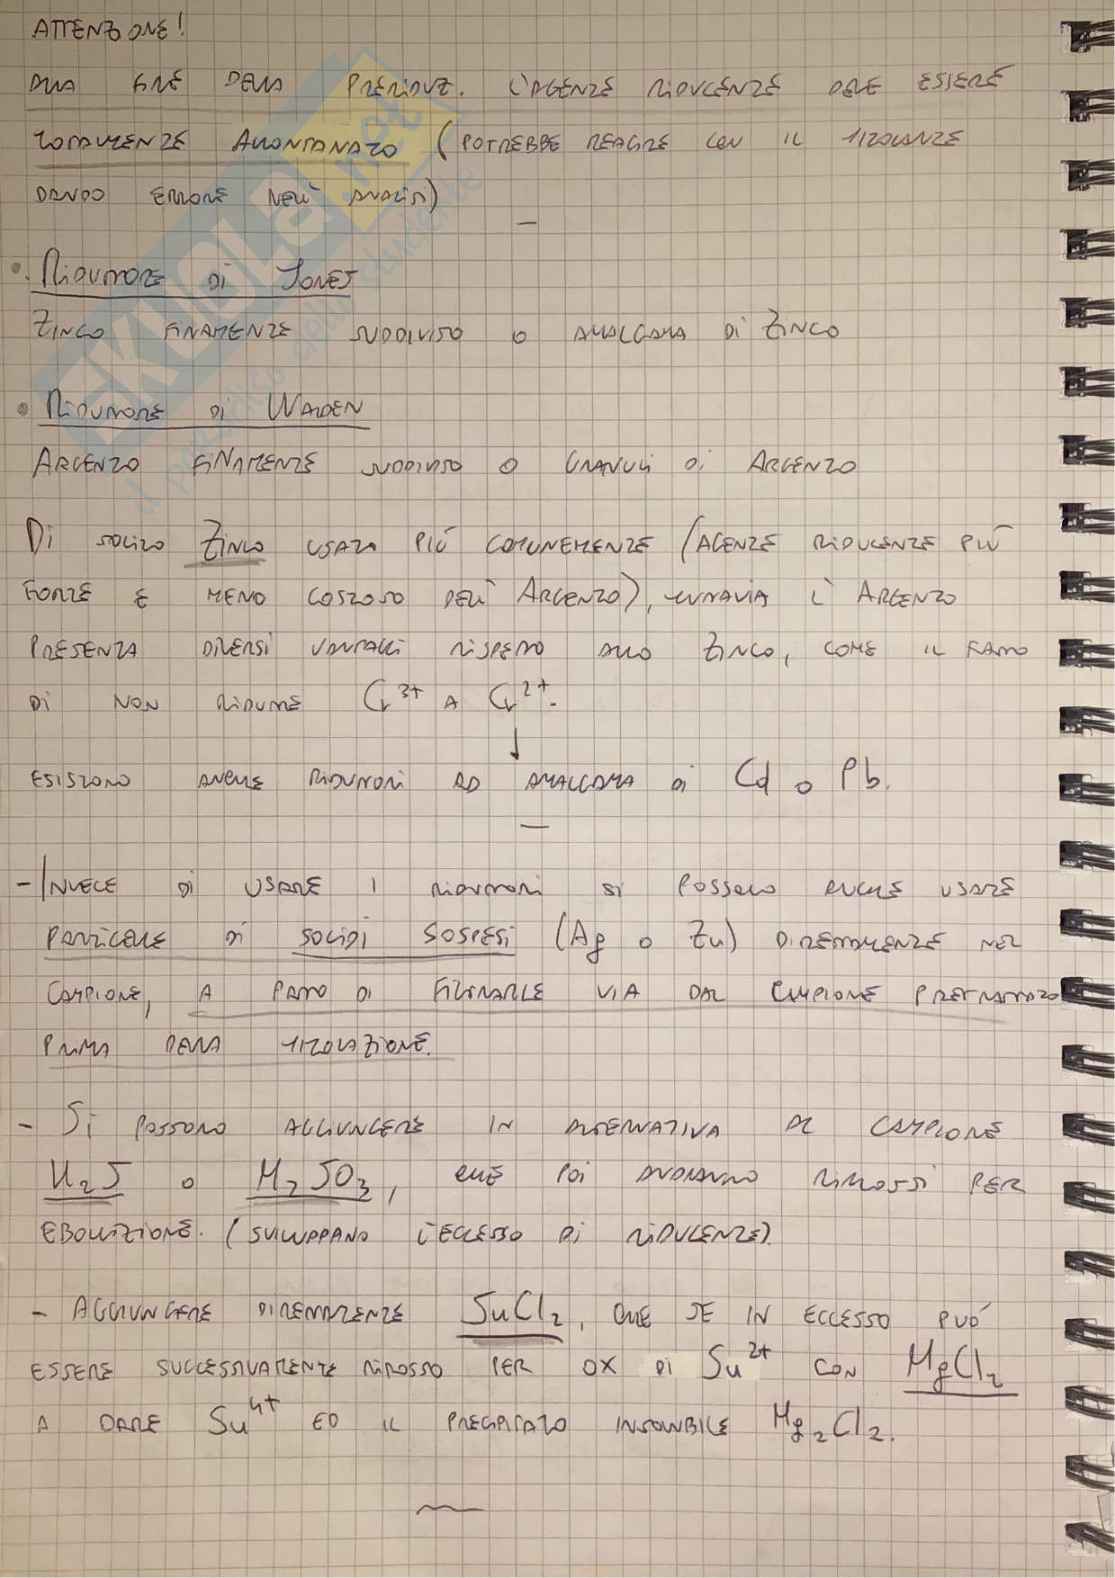 ATTENZIONE!
ALLA FINE DELLA PRERIDUZ. L'AGENTE RIDUCENTE DEVE ESSERE
TOTALMENTE ALLONTANATO (POTREBBE REAGIRE CON IL TITOLANTE
DANDO ERRORE NELL'ANALISI)
• RIDUTTORE DI JONES
ZINCO FINAMENTE SUDDIVISO O AMALGAMA DI ZINCO
• RIDUTTORE DI WALDEN
ARGENTO FINAMENTE SUDDIVISO O GRANULI DI ARGENTO
DI SOLITO ZINCO USATO PIÚ COMUNEMENTE (AGENTE RIDUCENTE PIÚ
FORTE E MENO COSTOSO DELL'ARGENTO), TUTTAVIA L'ARGENTO
PRESENTA DIVERSI VANTAGGI RISPETTO ALLO ZINCO, COME IL FATTO
DI NON RIDURRE Cr³⁺ A Cr²⁺.
↓
ESISTONO ANCHE RIDUTTORI AD AMALGAMA DI Cd O Pb.
- INVECE DI USARE I RIDUTTORI SI POSSONO ANCHE USARE
PARTICELLE DI SOLIDI SOSPESI (Ag O Zn) DIRETTAMENTE NEL
CAMPIONE, A PATTO DI FILTRARLE VIA DAL CAMPIONE PRETRATTATO
PRIMA DELLA TITOLAZIONE.
- SI POSSONO AGGIUNGERE IN ALTERNATIVA AL CAMPIONE
H₂S O H₂SO₃, CHE POI ANDRANNO RIMOSSI PER
EBOLLIZIONE. (SVILUPPANO L'ECCESSO DI RIDUCENTE)
- AGGIUNGERE DIRETTAMENTE SnCl₂, CHE SE IN ECCESSO PUÓ
ESSERE SUCCESSIVAMENTE RIMOSSO PER OX DI Sn²⁺ CON HgCl₂
A DARE Sn⁴⁺ ED IL PRECIPITATO INSOLUBILE Hg₂Cl₂.
SKUOLA.net